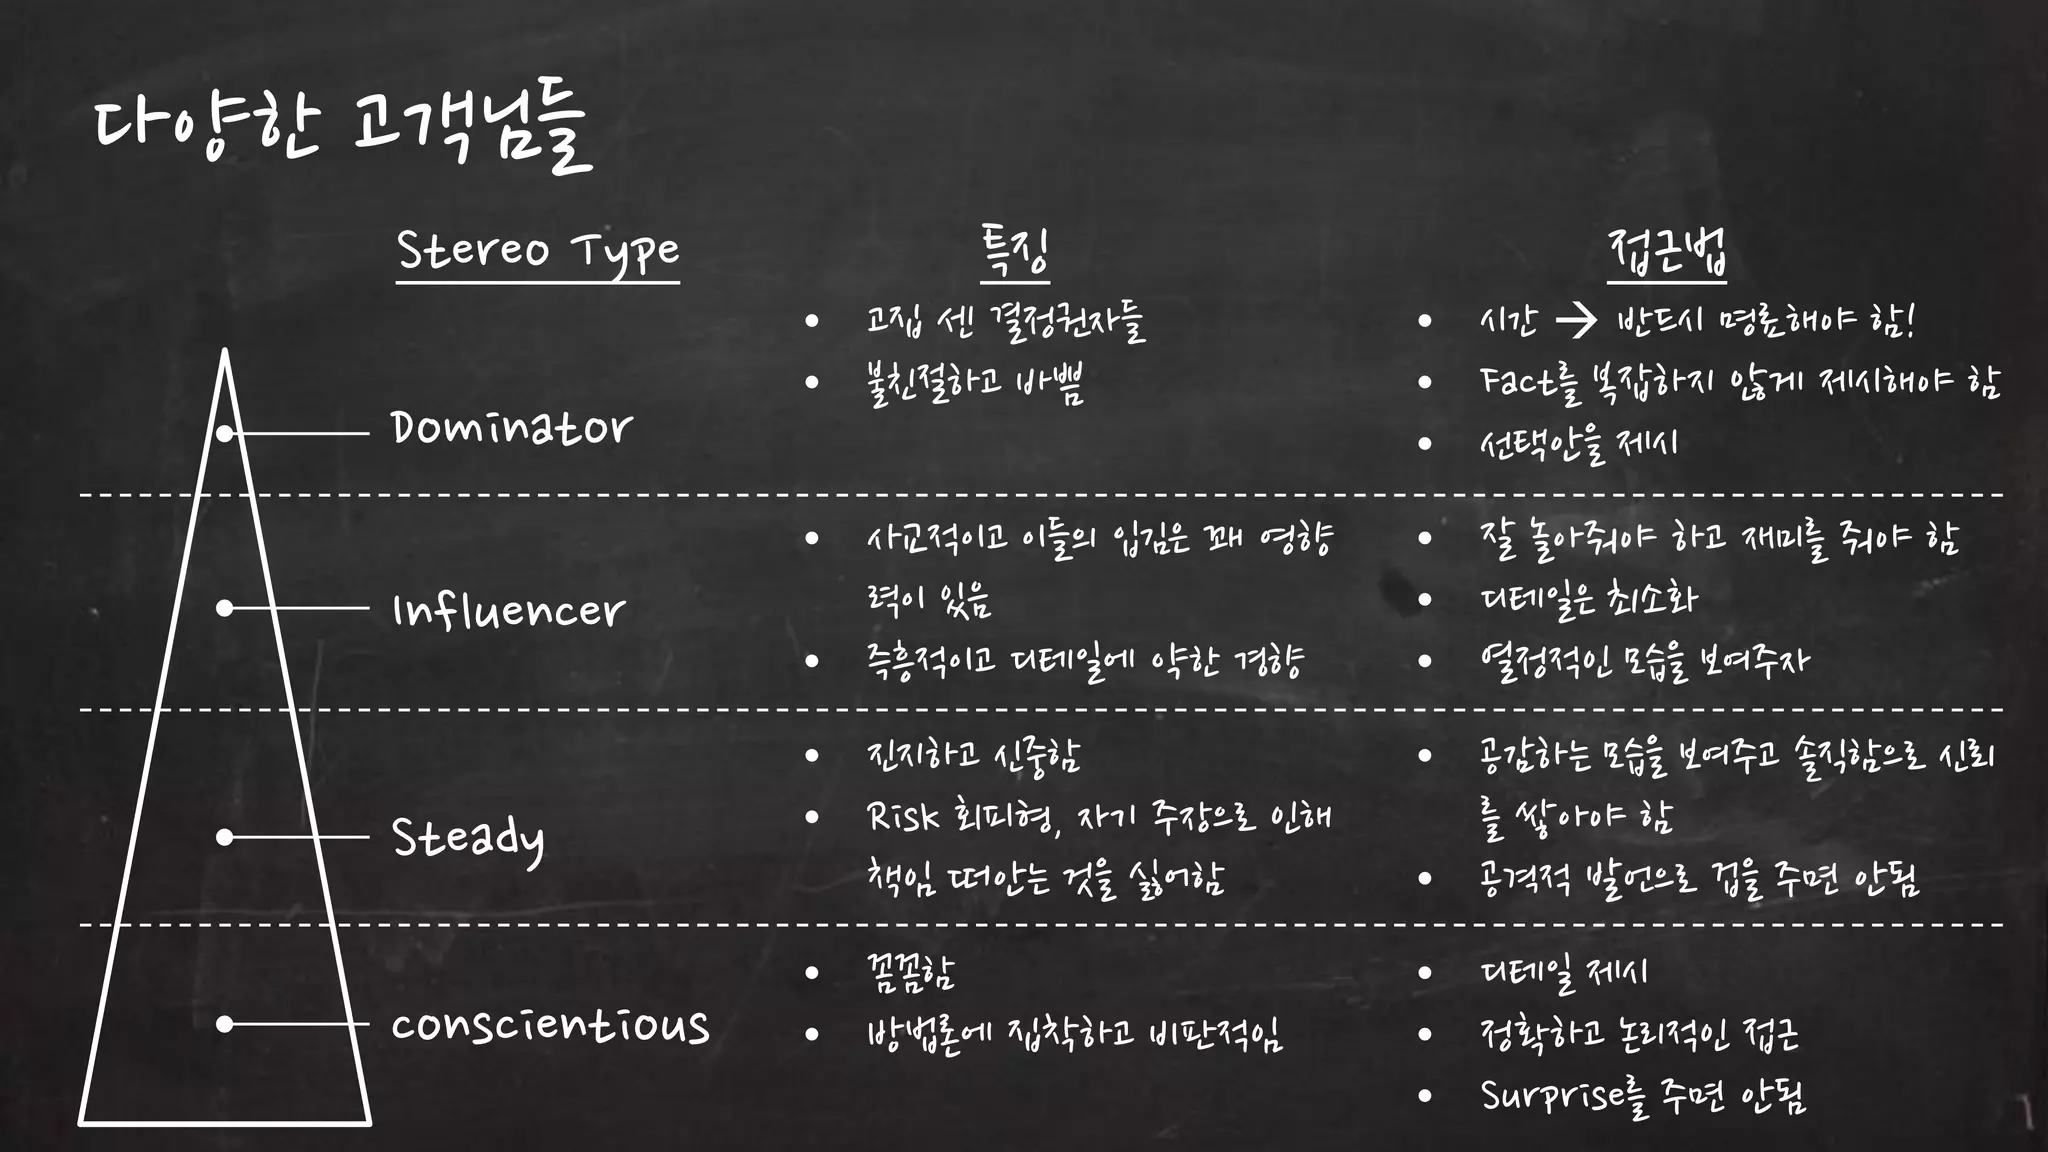 다양한 고객님들
Stereo Type
특징
접근법
Dominator
• 고집 센 결정권자들
• 불친절하고 바쁨
• 시간 → 반드시 명료해야 함!
• Fact를 복잡하지 않게 제시해야 함
• 선택안을 제시
Influencer
• 사교적이고 이들의 입김은 꽤 영향
력이 있음
• 즉흥적이고 디테일에 약한 경향
• 잘 놀아줘야 하고 재미를 줘야 함
• 디테일은 최소화
• 열정적인 모습을 보여주자
Steady
• 진지하고 신중함
• Risk 회피형, 자기 주장으로 인해
책임 떠안는 것을 싫어함
• 공감하는 모습을 보여주고 솔직함으로 신뢰
를 쌓아야 함
• 공격적 발언으로 겁을 주면 안됨
conscientious
• 꼼꼼함
• 방법론에 집착하고 비판적임
• 디테일 제시
• 정확하고 논리적인 접근
• Surprise를 주면 안됨